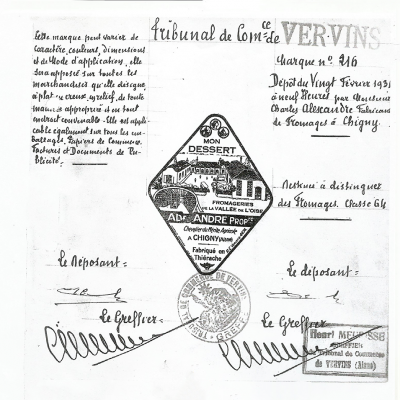 Tribunal de Com^ce de VERVINS
Cette marque peut varier de
caractère, couleurs, Dimensions
et de Mode d'application, elle
sera apposée sur toutes les
marchandises qu'elle désigne
à plat, en creux, en relief, de toute
manière appropriée et en tout
endroit convenable. Elle est appli-
cable également sur tous les em-
ballages, Papiers de Commerce,
Factures et Documents de Pu-
blicité.
Marque n° 216
Dépôt du Vingt Février 1931
à neuf Heures par Monsieur
Charles Alexandre Fabricant
de Fromages à Chigny.
Destiné à distinguer
des Fromages. Classe 64
MON
DESSERT
FROMAGERIES
DE LA VALLÉE DE L'OISE
ANDRÉ PROP^re
Chevalier du Mérite Agricole
A CHIGNY (AISNE)
Fabriqué en
Thiérache
Le Déposant =
Le déposant =
TRIBUNAL DE COMMERCE DE VERVINS
Le Greffier =
Le Greffier
Henri
GREFFIER
Tribunal de Commerce
de VERVINS (Aisne)